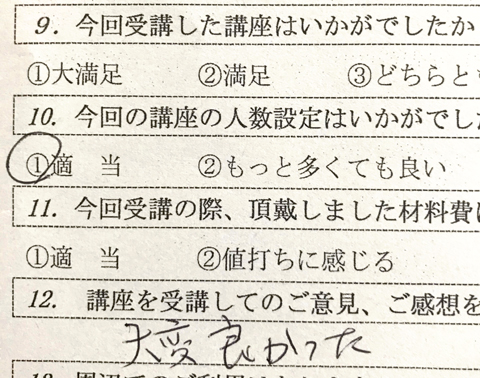 9. 今回受講した講座はいかがでしたか
①大満足 ②満足 ③どちらとも
10. 今回の講座の人数設定はいかがでした
①適 当 ②もっと多くても良い
11. 今回受講の際、頂戴しました材料費は
①適 当 ②値打ちに感じる
12. 講座を受講してのご意見、ご感想を
大変良かった